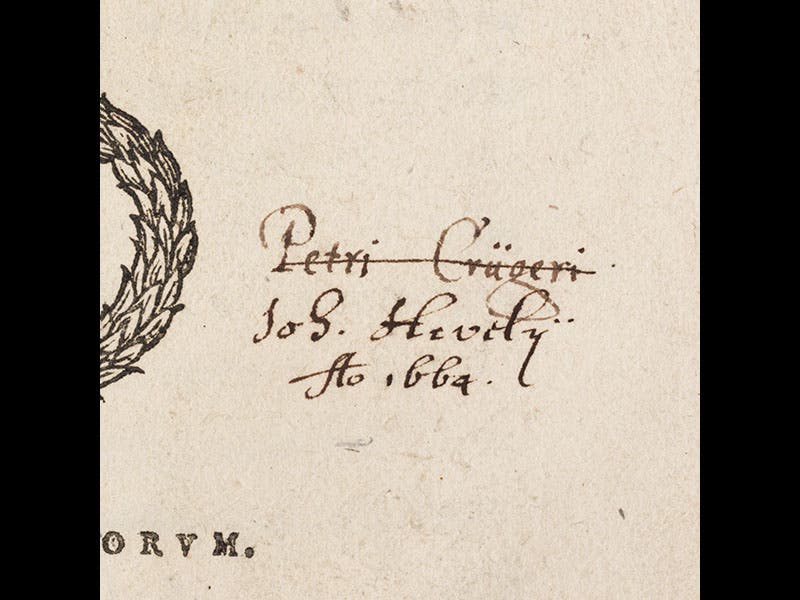 Petri Crügeri
Joh. Hevelij
Ao 1664.
ORVM.